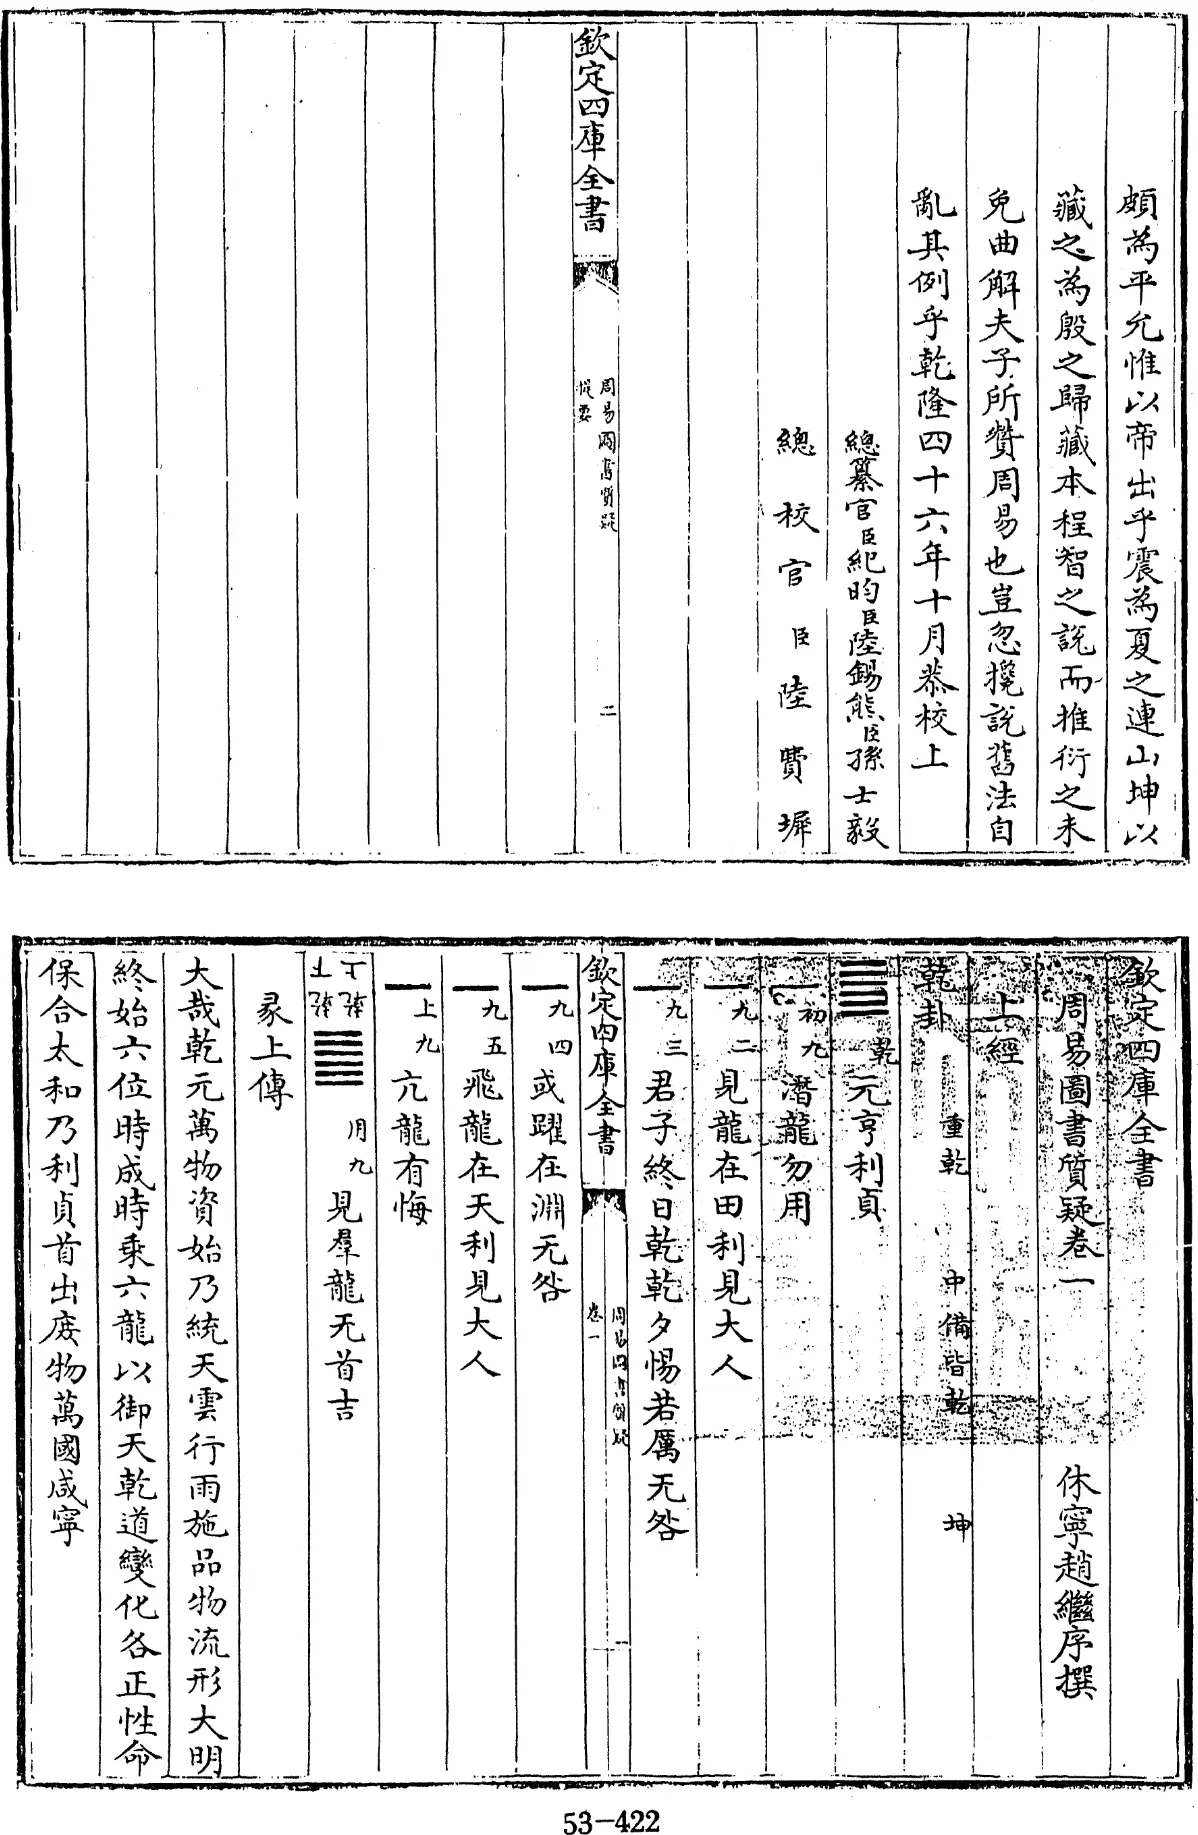 頗為平允惟以帝出乎震為夏之連山坤以
藏之為殷之歸藏本程智之說而推衍之未
免曲解夫子所贊周易也豈忽攙說舊法自
亂其例乎乾隆四十六年十月恭校上
總纂官臣紀昀臣陸錫熊臣孫士毅
總校官臣陸費墀
欽定四庫全書
周易圖書質疑
提要
二
欽定四庫全書
周易圖書質疑卷一
休寧趙繼序撰
上經
乾卦 重乾 中備皆乾 坤
乾 元亨利貞
初九 潛龍勿用
九二 見龍在田利見大人
九三 君子終日乾乾夕惕若厲无咎
欽定四庫全書
周易圖書質疑
卷一
一
九四 或躍在淵无咎
九五 飛龍在天利見大人
上九 亢龍有悔
用九 見羣龍无首吉
彖上傳
大哉乾元萬物資始乃統天雲行雨施品物流形大明
終始六位時成時乘六龍以御天乾道變化各正性命
保合太和乃利貞首出庶物萬國咸寧
53-422